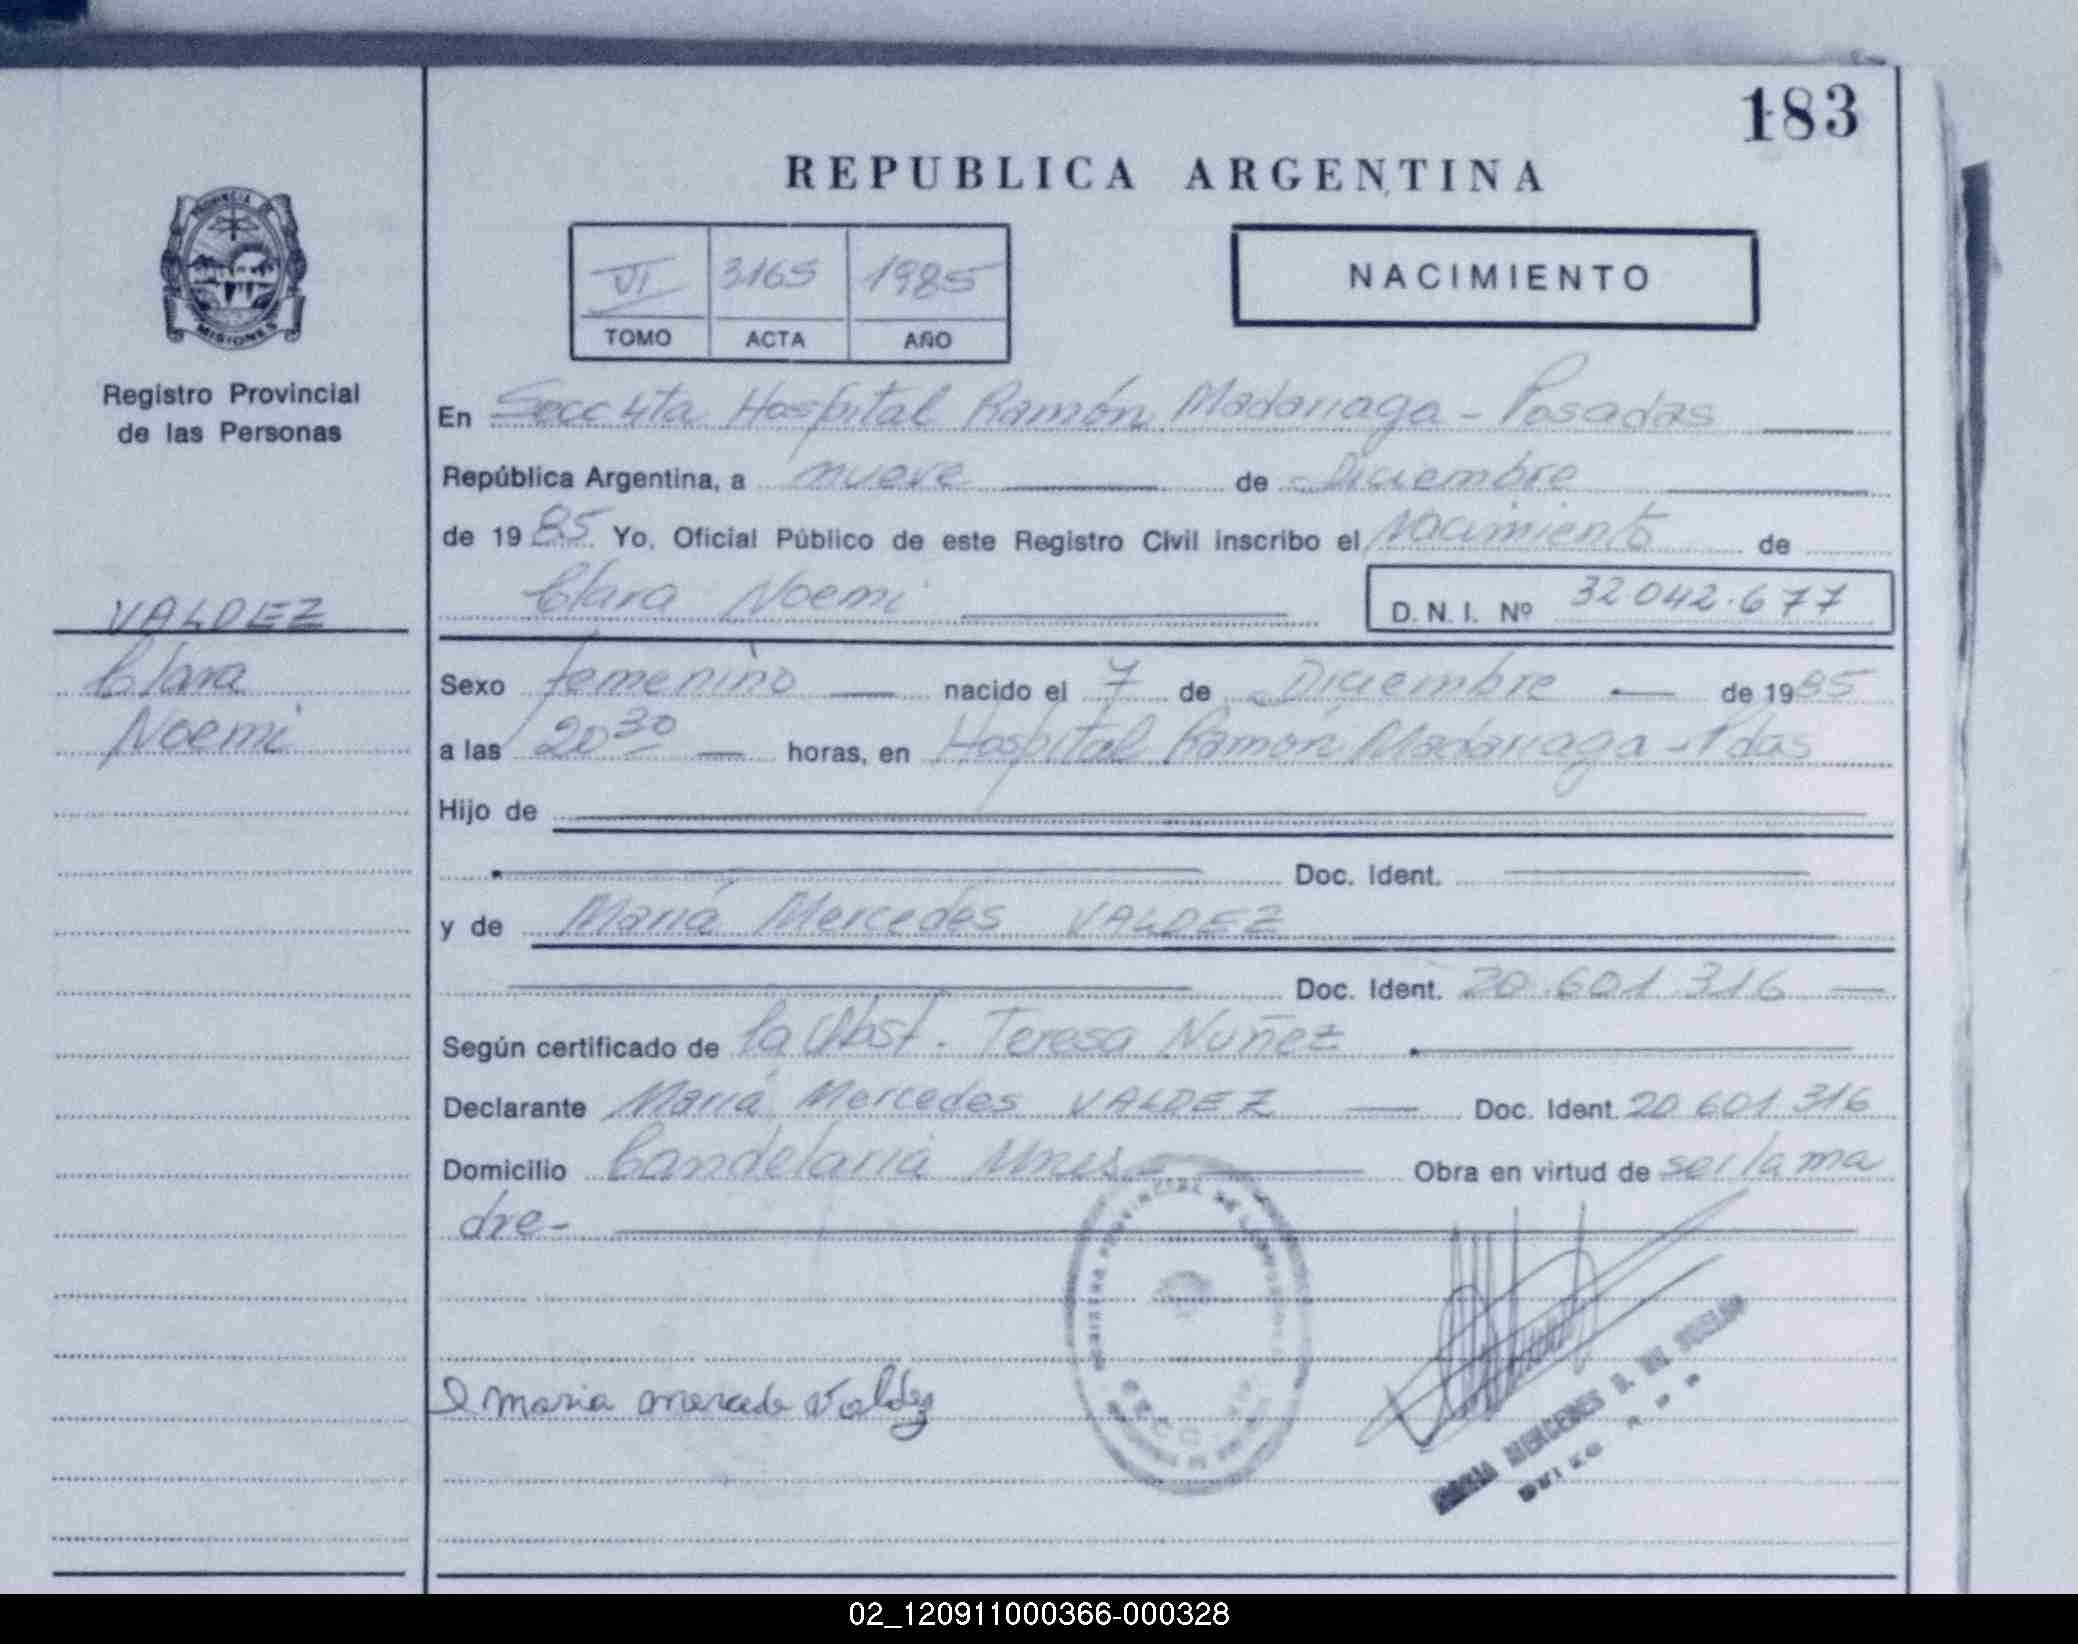 183
REPUBLICA ARGENTINA
PROVINCIA DE
MISIONES
Registro Provincial
de las Personas
VI 3165 1985
TOMO ACTA AÑO
NACIMIENTO
En Secc 4ta Hospital Ramón Madariaga - Posadas
República Argentina, a nueve de Diciembre
de 1985 Yo, Oficial Público de este Registro Civil inscribo el Nacimiento de
Clara Noemi D. N. I. Nº 32 042.677
VALDEZ
Clara
Noemi
Sexo femenino nacido el 7 de Diciembre de 1985
a las 20 30 horas, en Hospital Ramón Madariaga - Pdas
Hijo de
Doc. Ident.
y de María Mercedes VALDEZ
Doc. Ident. 20.601.316
Según certificado de la Obst. Teresa Nuñez
Declarante María Mercedes VALDEZ Doc. Ident. 20 601 316
Domicilio Candelaria Mnes Obra en virtud de ser la ma
dre-
maria mercede Valdez
MERCEDES
02_120911000366-000328